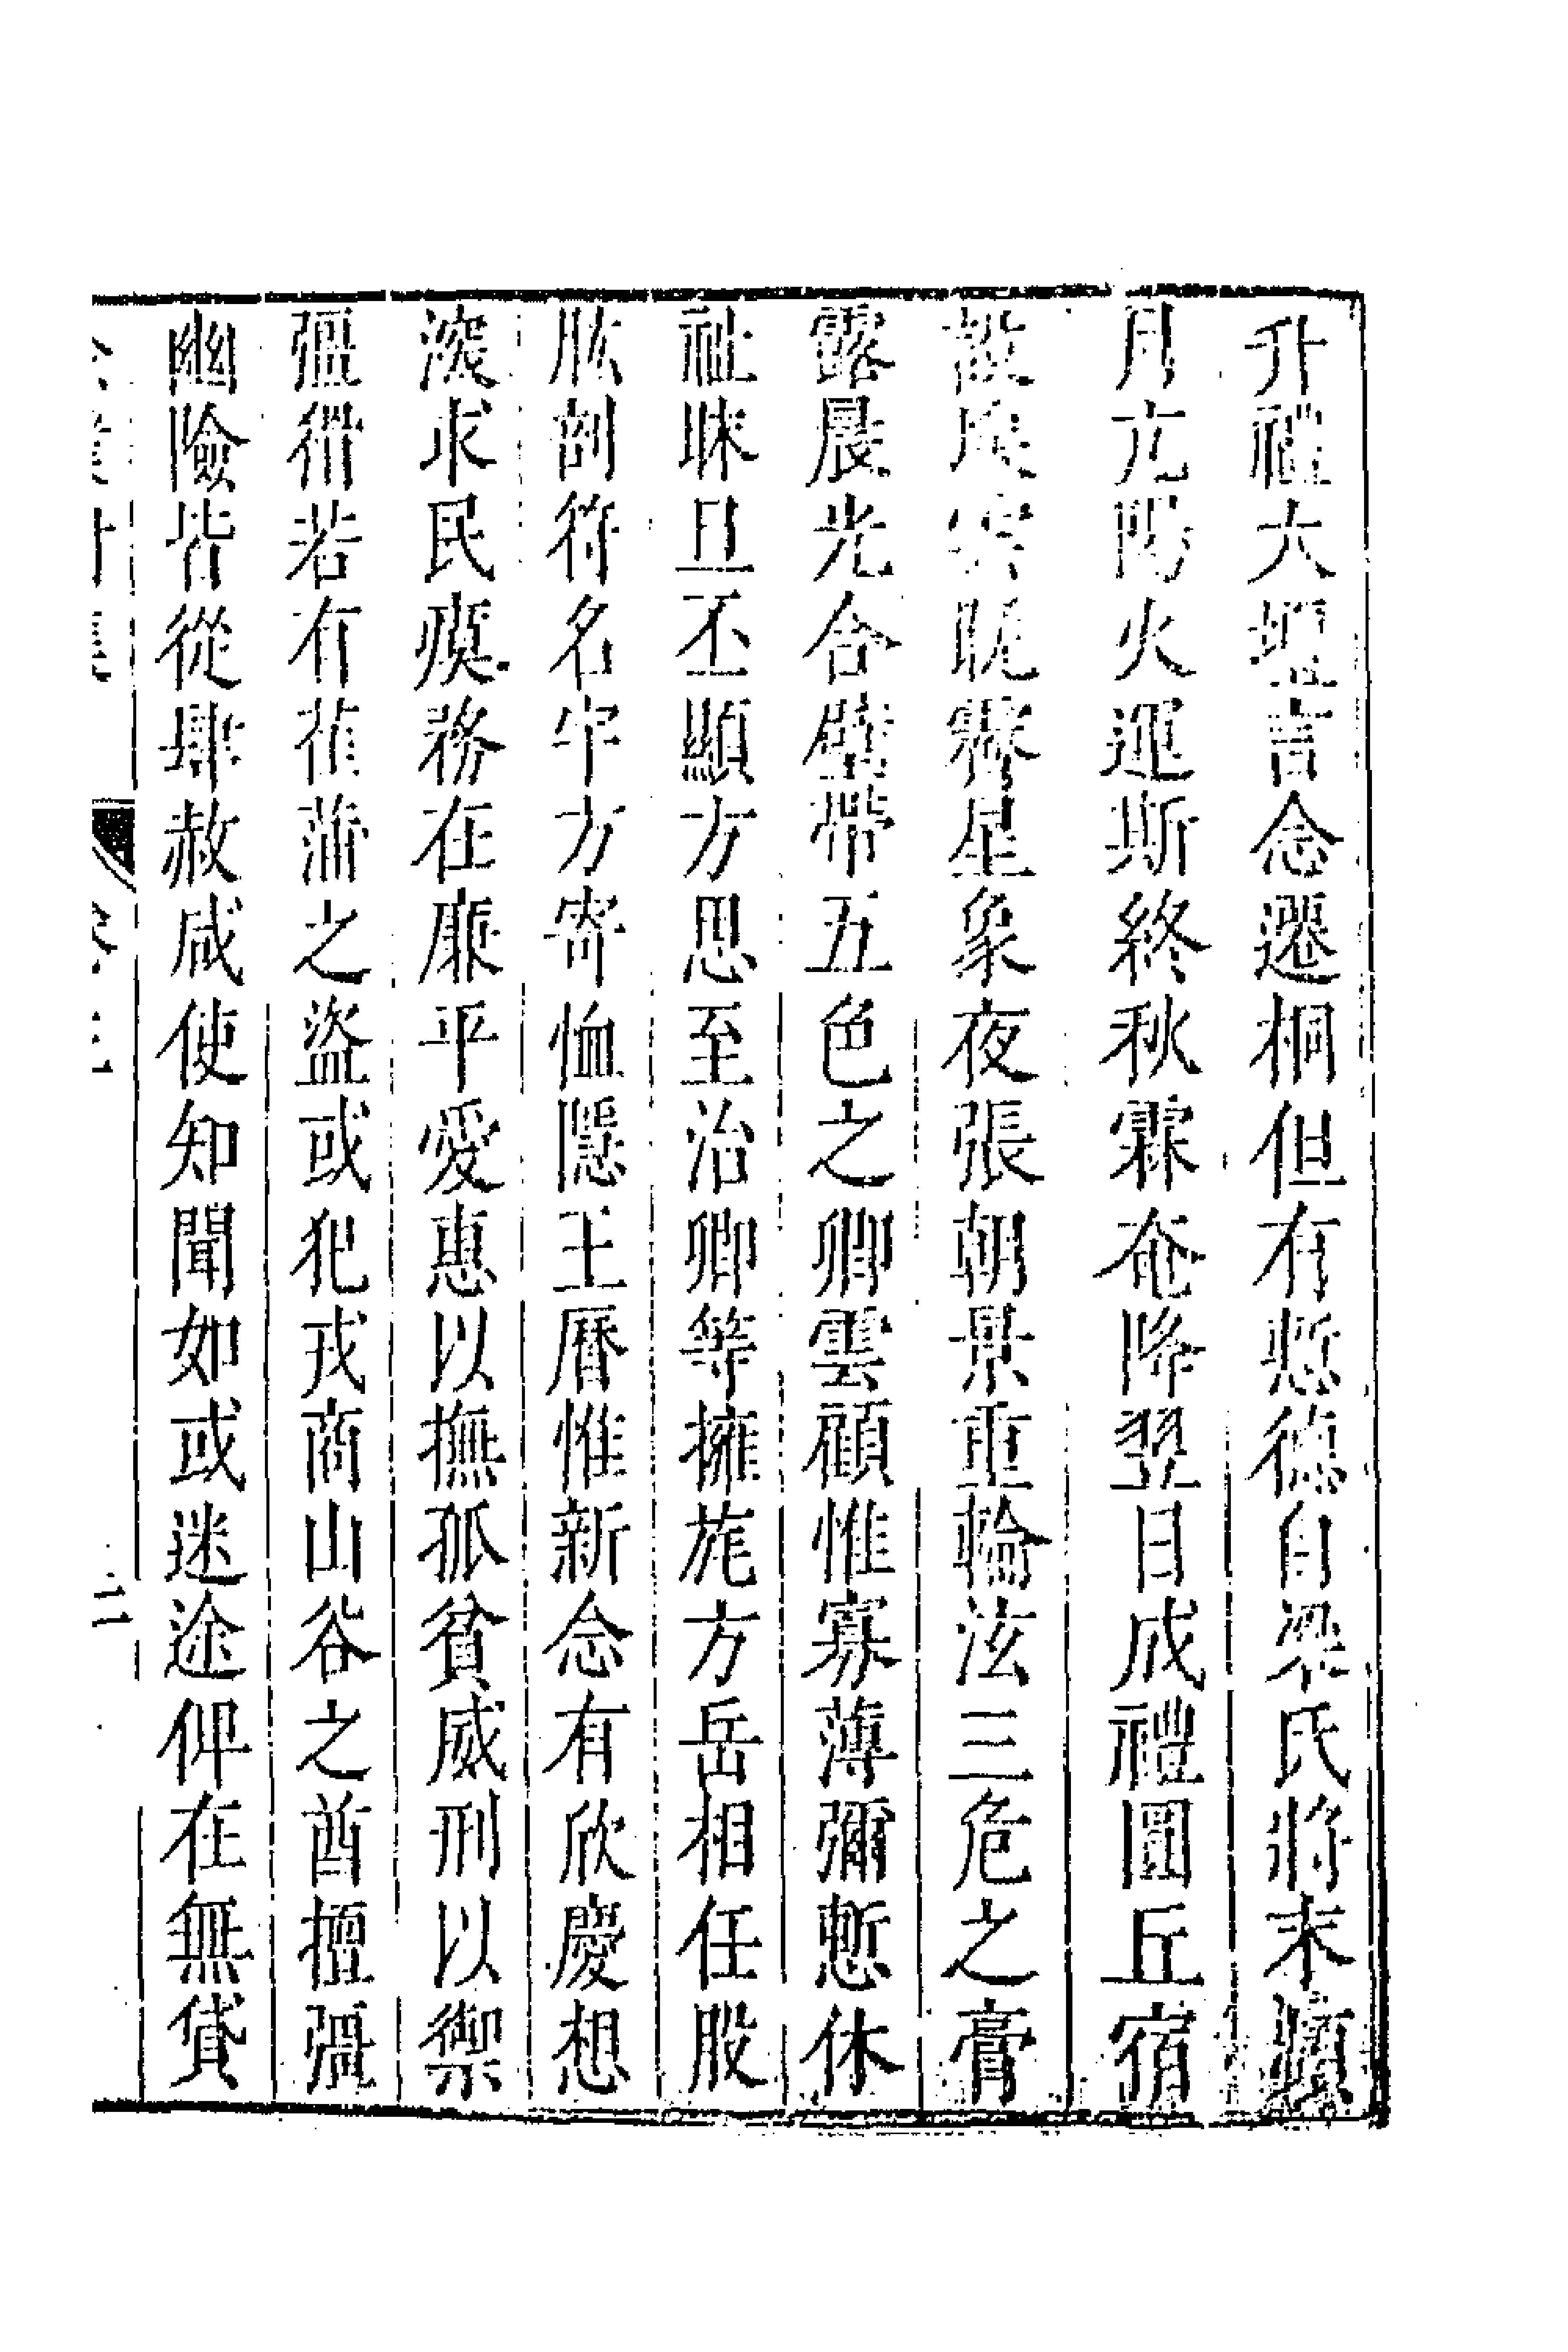 升禮大壇言念遷桐但有慙德自梁氏將末頻
月亢陽火運斯終秋霖奄降翌日成禮圓丘宿
設埃雲晚霽星象夜張朝景重輪泫三危之膏
露晨光合璧帶五色之卿雲顧惟寡薄彌慙休
祉昧旦丕顯方思至治卿等擁旄方岳相任股
肱剖符名守方寄恤隱王曆惟新念有欣慶想
深求民瘼務在廉平愛惠以撫孤貧威刑以禦
彊猾若有萑蒲之盜或犯戎商山谷之酋擅彊
幽險皆從肆赦咸使知聞如或迷途俾在無貸
二